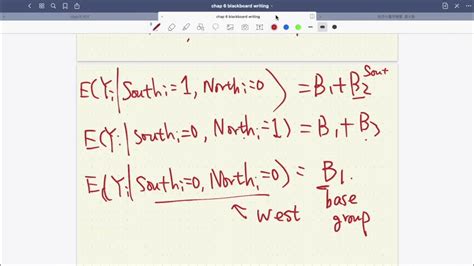 chap 6 blackboard writing
chap 6 blackboard writing
E(Yi|Southi=1, Northi=0) = B1+B2 Sout
E(Yi|Southi=0, Northi=1) = B1+B3
E(Yi|Southi=0, Northi=0) = B1.
west
base
group